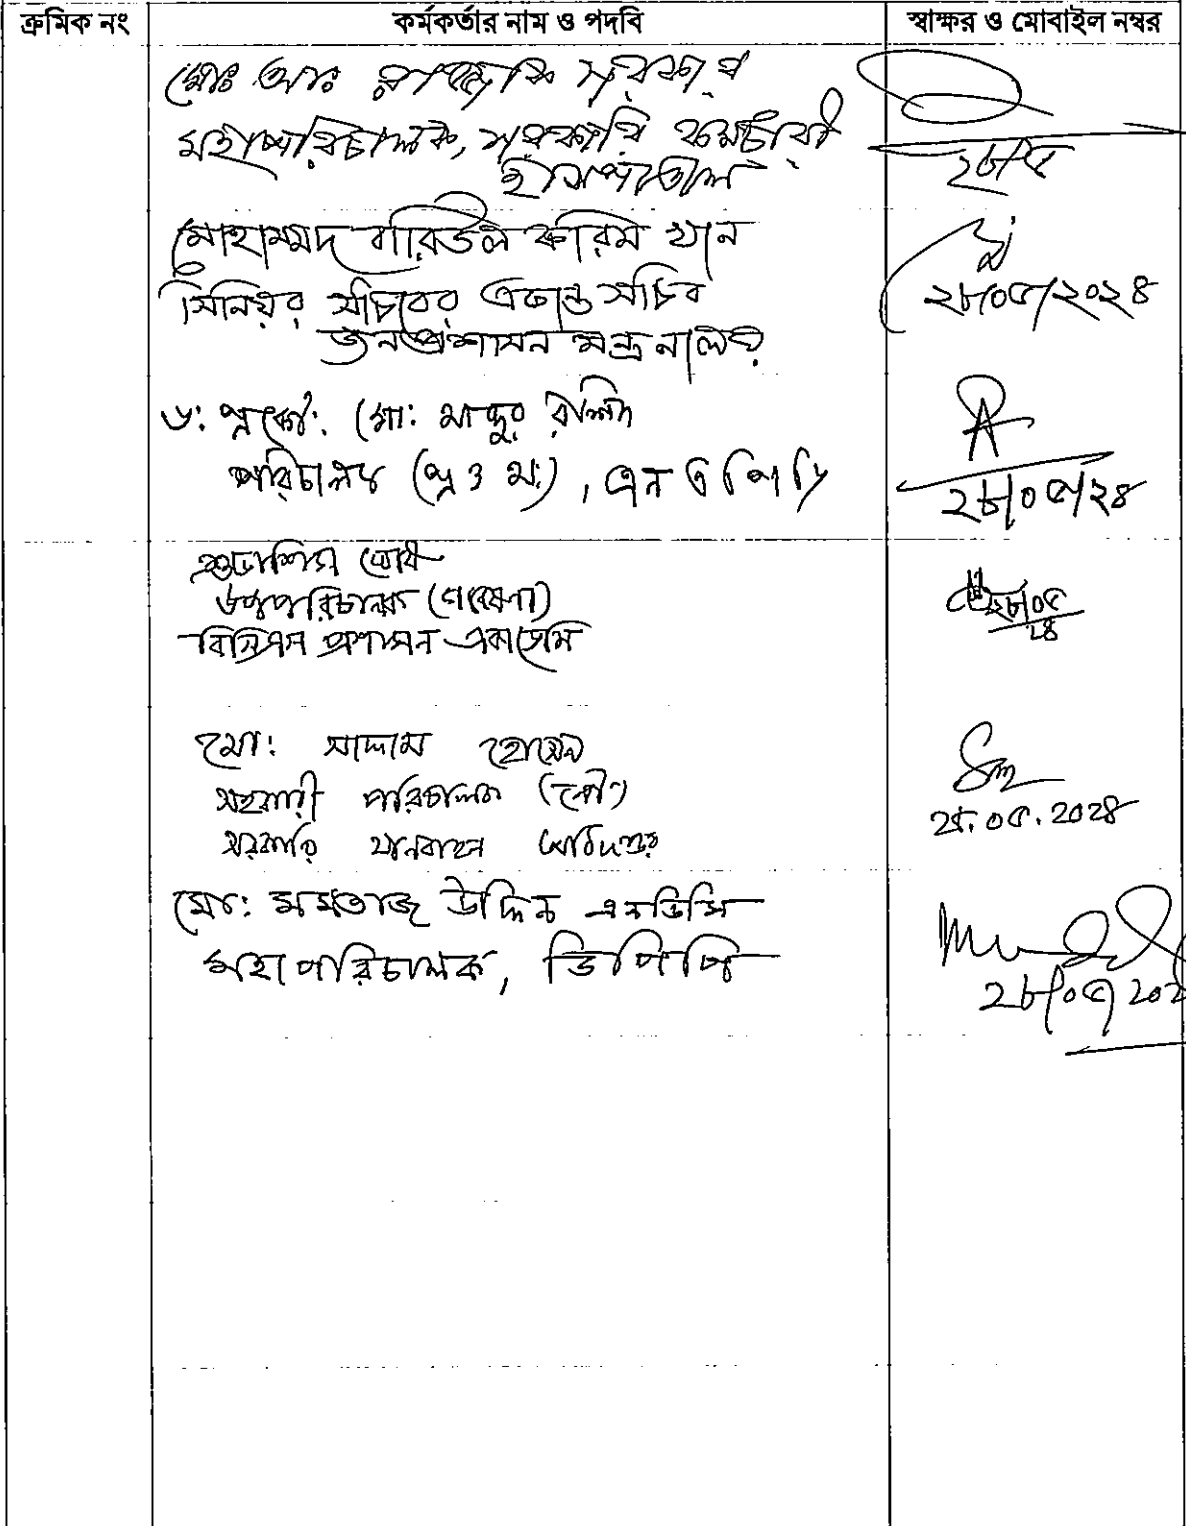 ক্রমিক নং	কর্মকর্তার নাম ও পদবি	স্বাক্ষর ও মোবাইল নম্বর
মোঃ আঃ সরকার
মহাপরিচালক, সরকারি কর্মচারী
হাসপাতাল
২৮/৫
মোহাম্মদ বারিউল করিম খান
সিনিয়র সচিবের একান্ত সচিব
জনপ্রশাসন মন্ত্রনালয়
২৮/০৫/২০২৪
ড: প্রকৌ: মো: মামুনুর রশিদ
পরিচালক (প্র ও ম:),
২৮/০৫/২৪
শুভাশিস ঘোষ
উপপরিচালক (গবেষণা)
বিসিএস প্রশাসন একাডেমি
২৮/০৫
২৪
মো: সাদ্দাম হোসেন
সহকারী পরিচালক (নৌ)
সরকারি যানবাহন অধিদপ্তর
২৮.০৫.২০২৪
মো: মমতাজ উদ্দিন এনডিসি
মহাপরিচালক, ডিপিপি
২৮/০৫/২০২